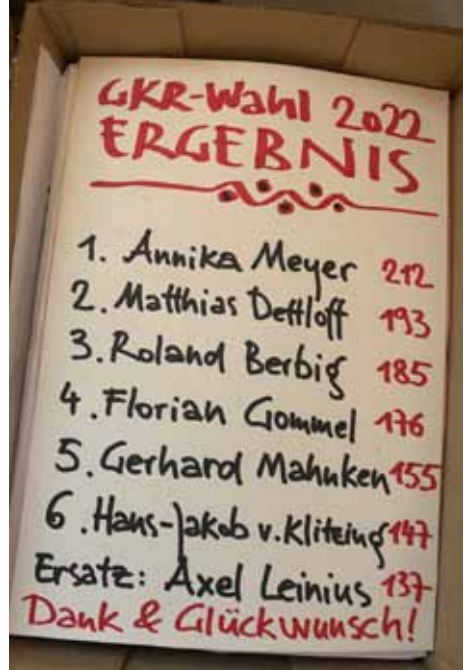 GKR-Wahl 2022
ERGEBNIS
1. Annika Meyer 212
2. Matthias Dettloff 193
3. Roland Berbig 185
4. Florian Gommel 176
5. Gerhard Mahnken 155
6. Hans-Jakob v. Klitzing 147
Ersatz: Axel Leinius 137
Dank & Glückwunsch!